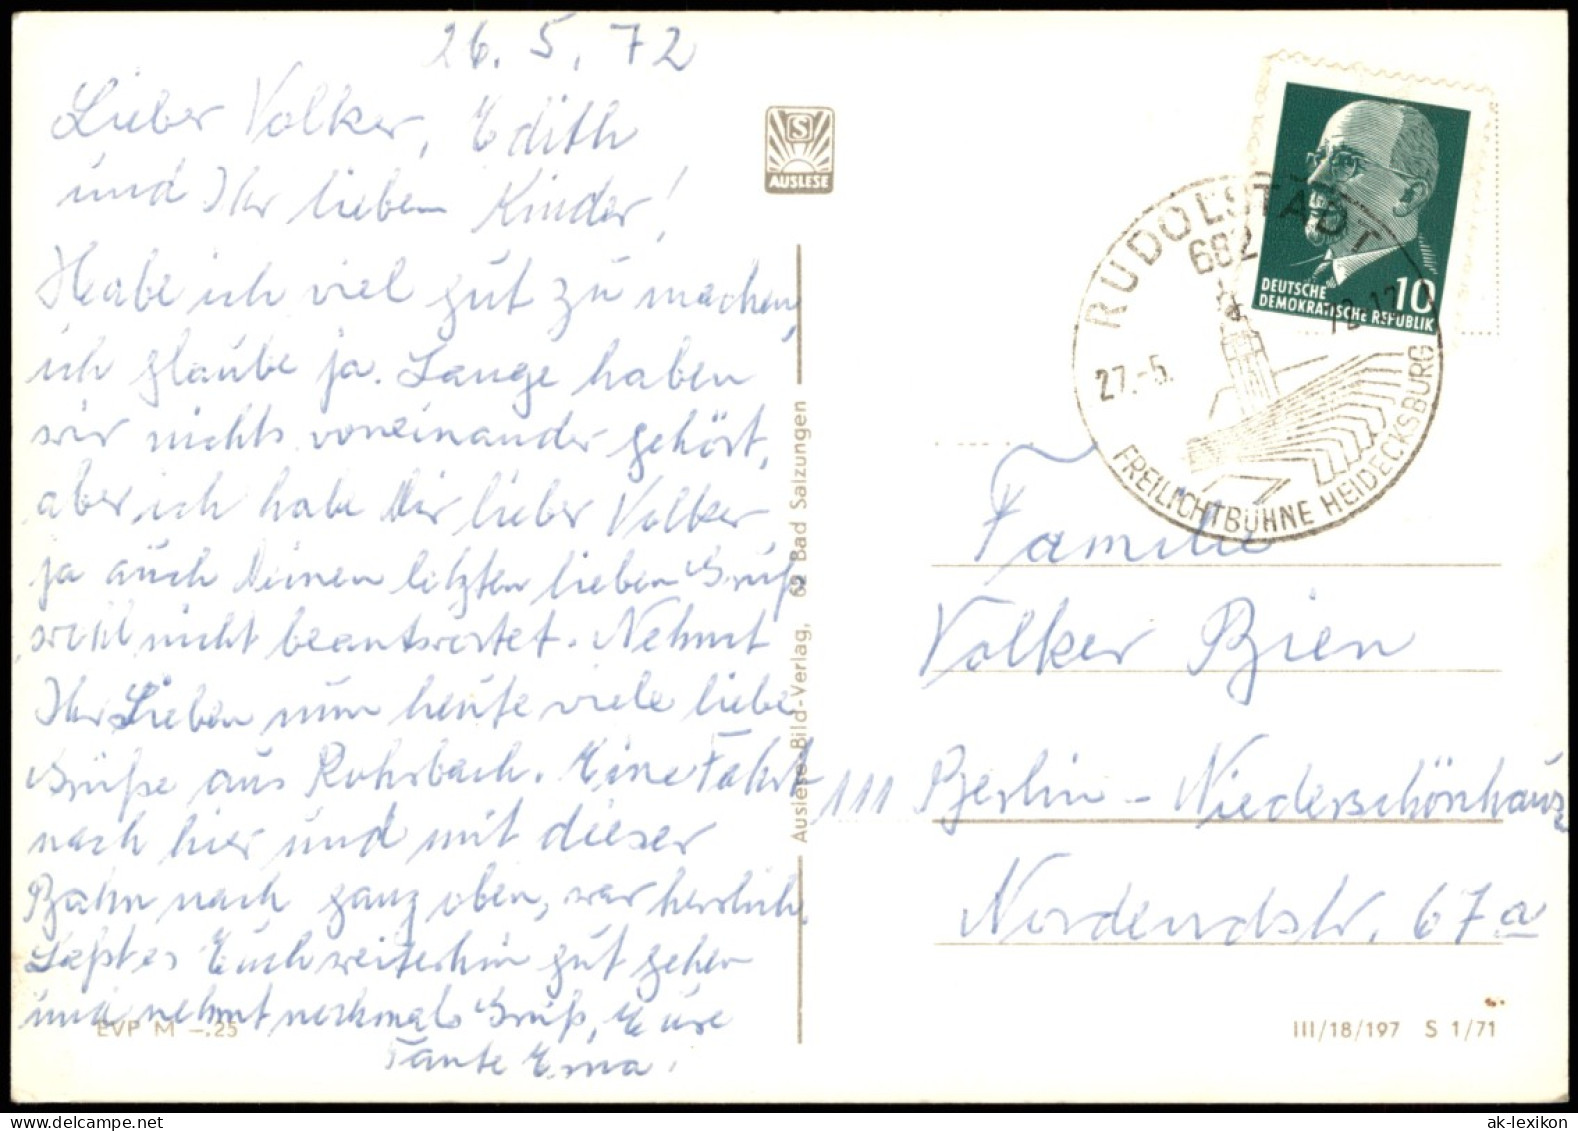 26. 5. 72
Lieber Volker, Edith
und Ihr lieben Kinder!
Habe ich viel gut zu machen,
ich glaube ja. Lange haben
wir nichts voneinander gehört,
aber ich habe Dir lieber Volker
ja auch Deinen letzten lieben Gruß
wohl nicht beantwortet. Nehmt
Ihr Lieben nun heute viele liebe
Grüße aus Rohrbach. Eine Fahrt
nach hier und mit dieser
Bahn nach ganz oben, war herrlich.
Laßt es Euch weiterhin gut gehen
und nehmt nochmals Gruß, Eure
Tante Erna.
EVP M –.25
S
AUSLESE
Auslese-Bild-Verlag, 62 Bad Salzungen
DEUTSCHE
DEMOKRATISCHE REPUBLIK
10
RUDOLSTADT
682
27.-5.
FREILICHTBÜHNE HEIDECKSBURG
Familie
Volker Bien
111 Berlin - Niederschönhaus
Nordendstr. 67a
III/18/197 S 1/71
ak-lexikon